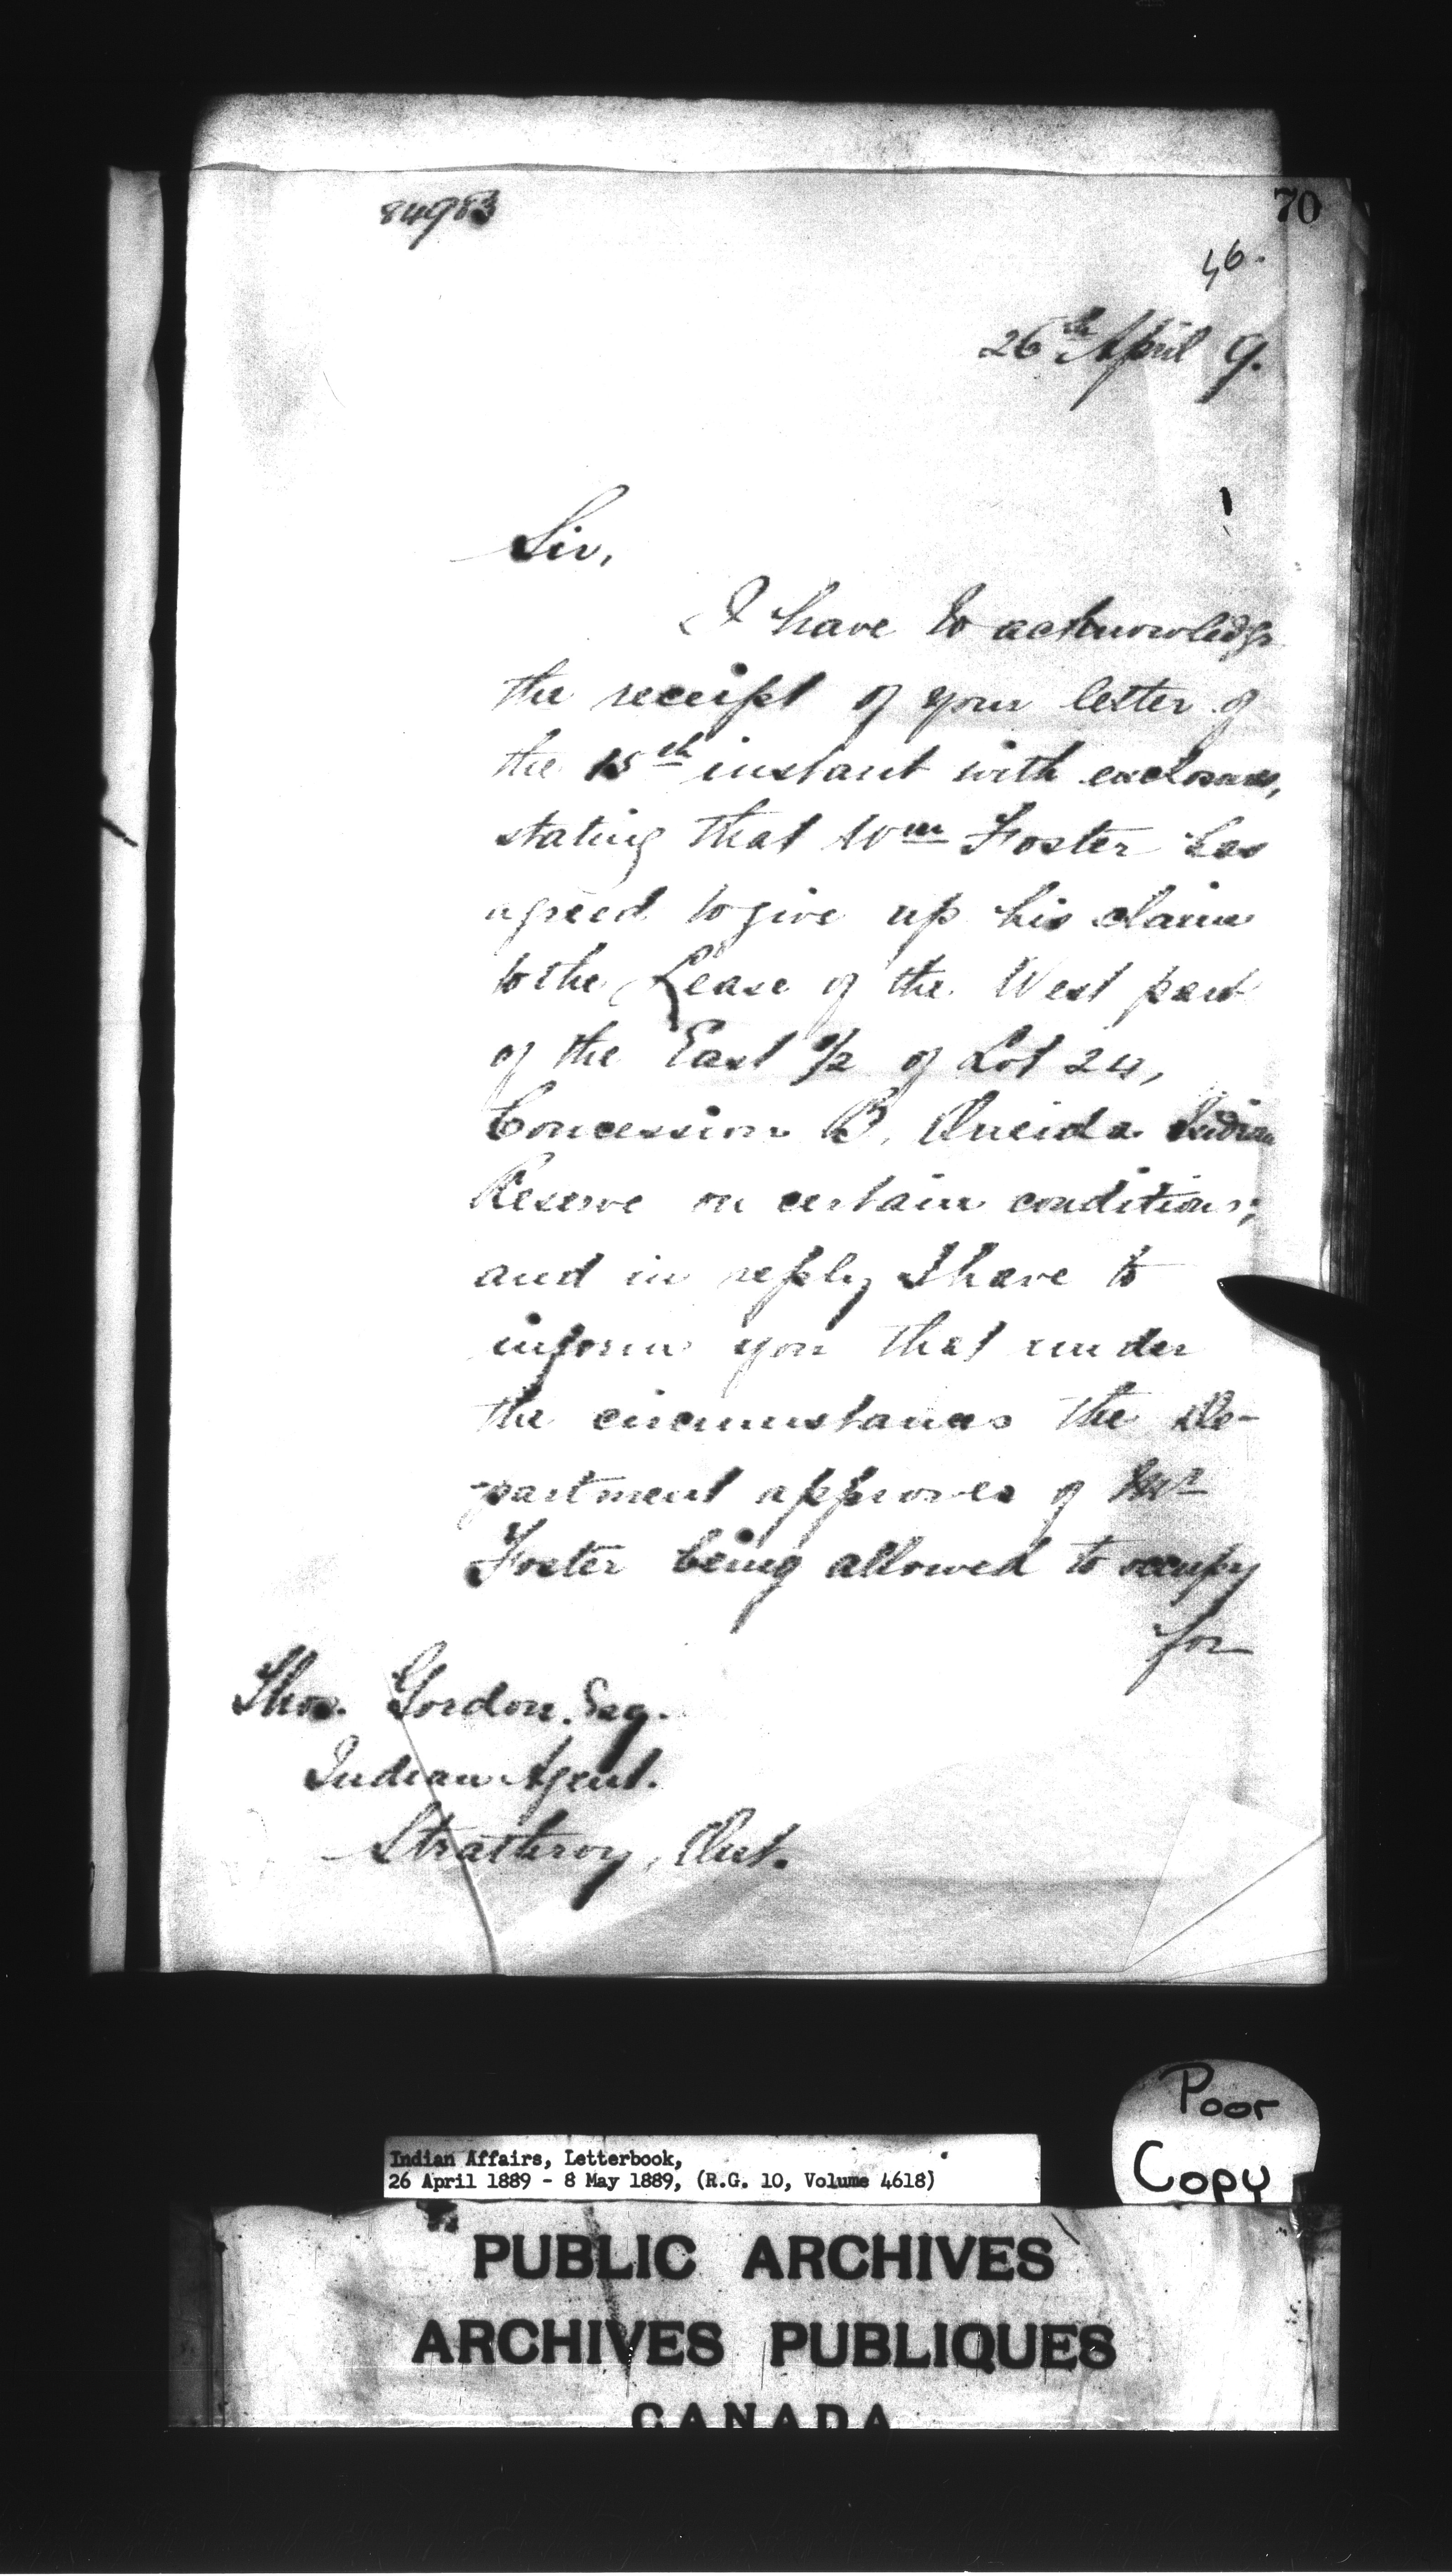 84983
70
46.
26th April 9.
Sir,
I have to acknowledge
the receipt of your letter of
the 15th instant with enclosures,
stating that Wm Foster has
agreed to give up his claim
to the Lease of the West part
of the East 1/2 of Lot 24,
Concession B, Oneida Indian
Reserve on certain conditions;
and in reply I have to
inform you that under
the circumstances the De-
partment approves of Mr
Foster being allowed to occupy
for
Thos. Gordon, Esq.
Indian Agent.
Strathroy, Ont.
Poor
Copy
Indian Affairs, Letterbook,
26 April 1889 - 8 May 1889, (R.G. 10, Volume 4618)
PUBLIC ARCHIVES
ARCHIVES PUBLIQUES
CANADA